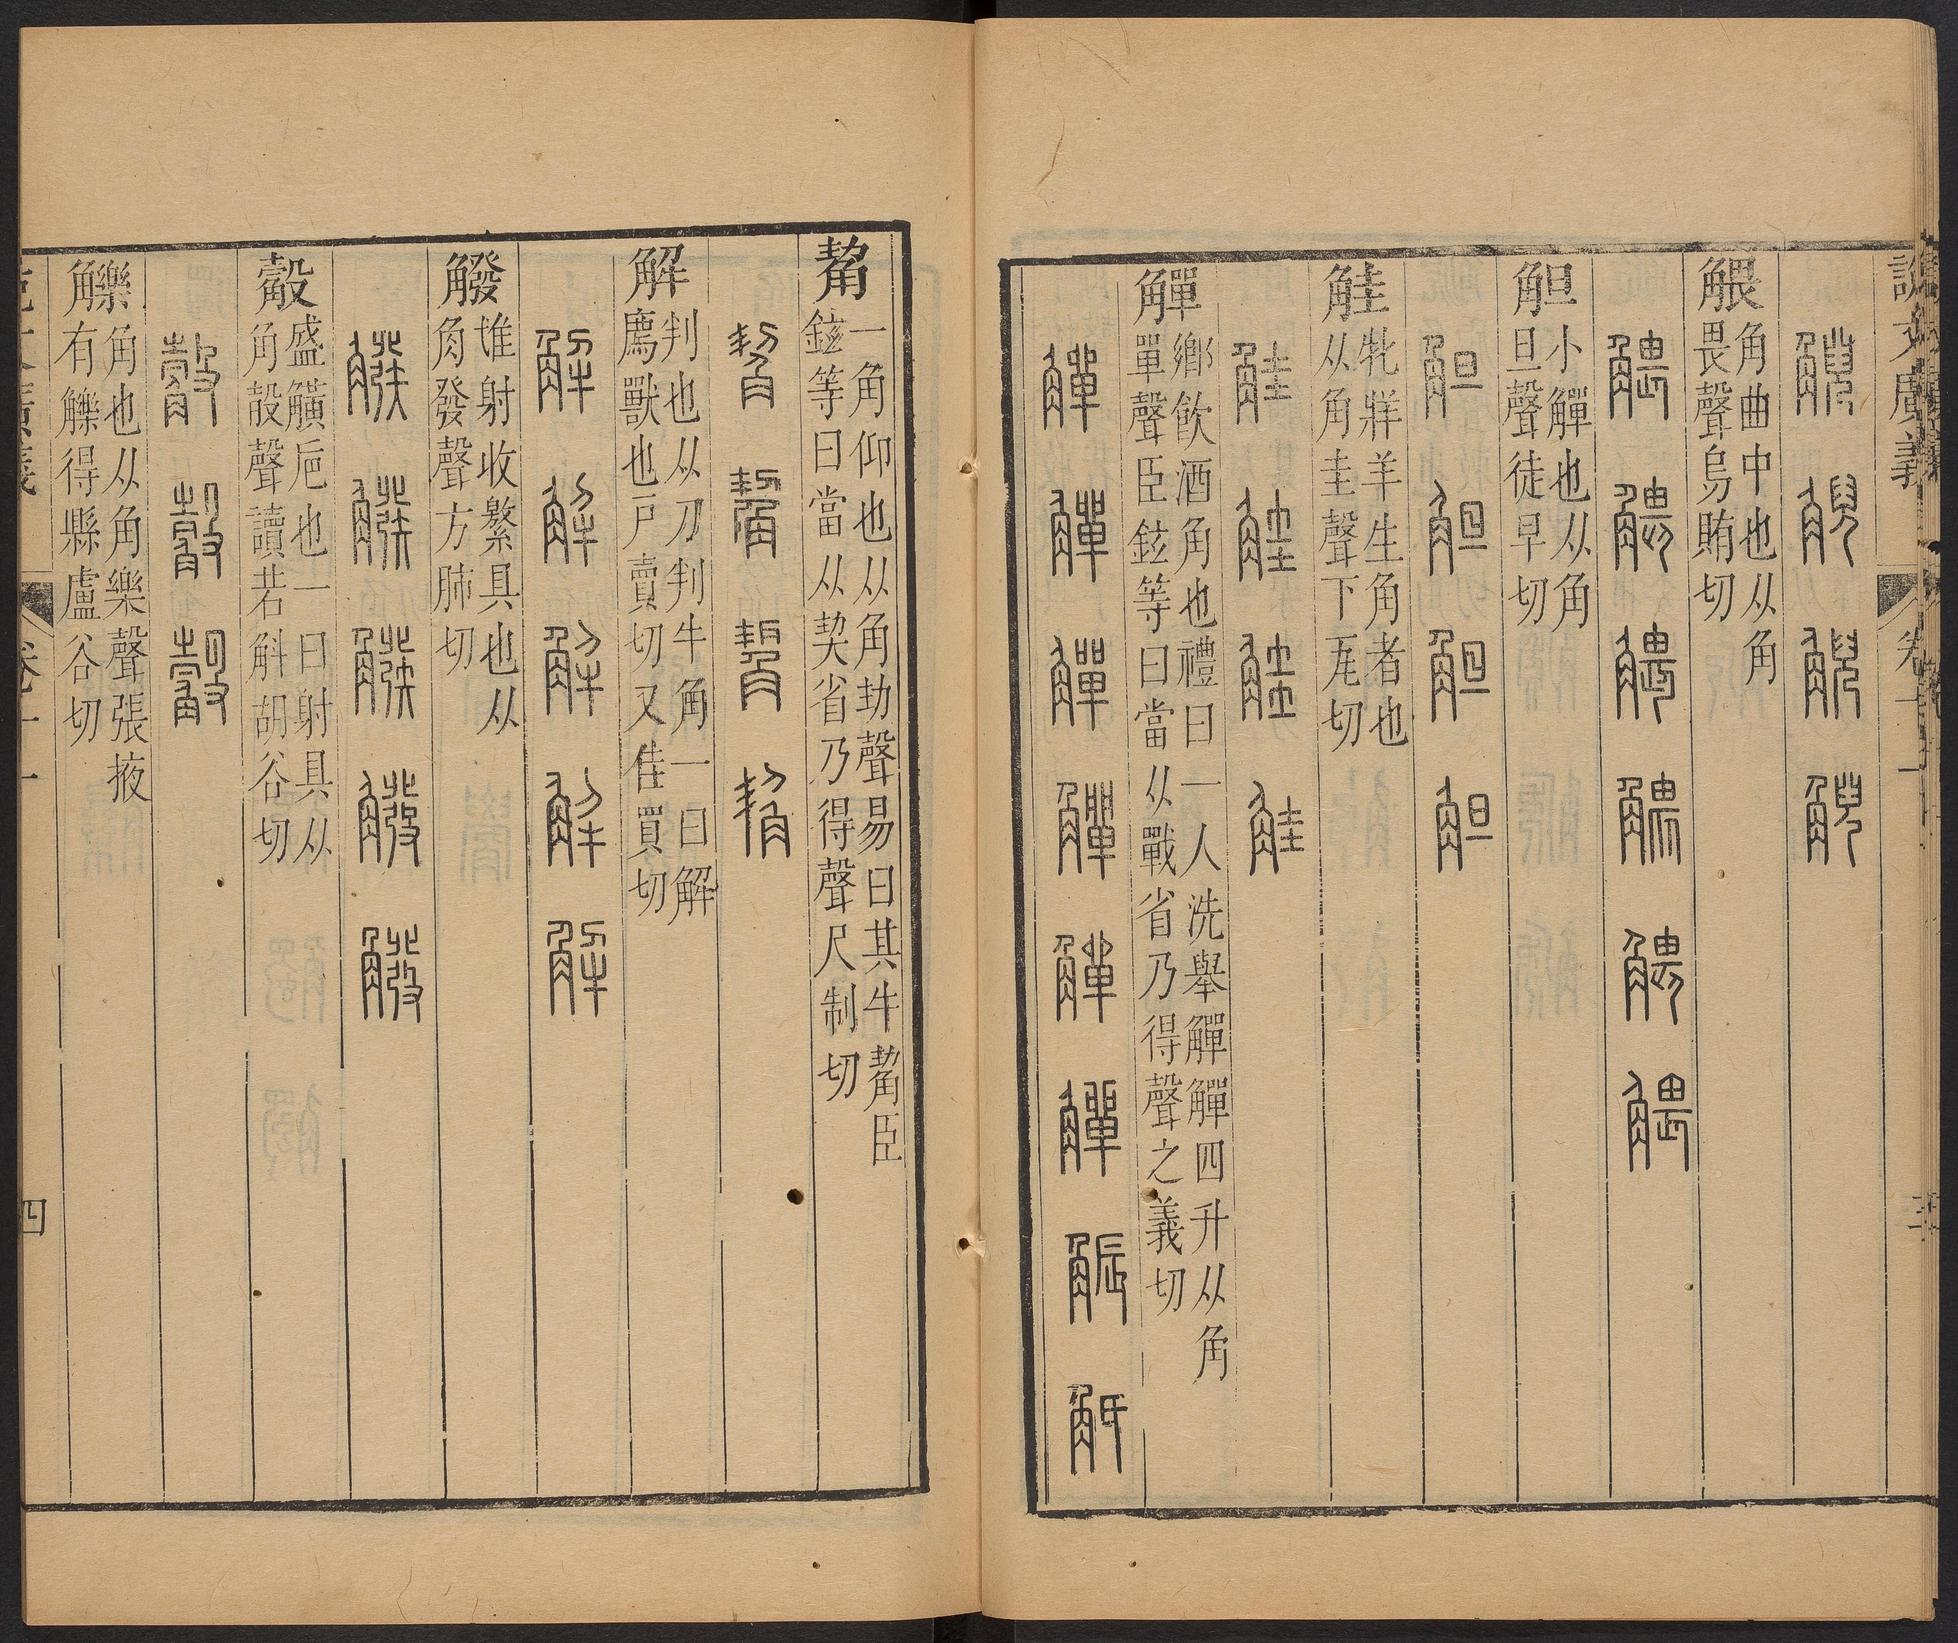 說文廣義 卷十一 三
觬 觬 觬 觬
䚈 角曲中也从角
畏聲烏賄切
䚈 䚈 䚈 䚈 䚈 䚈
觛 小觶也从角
旦聲徒早切
觛 觛 觛 觛
觟 牝牂羊生角者也
从角圭聲下瓦切
觟 觟 觟 觟
觶 鄉飲酒角也禮曰一人洗舉觶觶四升从角
單聲臣鉉等曰當从戰省乃得聲之義切
觶 觶 觶 觶 觶 觶 𧣨 觗
觢 一角仰也从角㓞聲易曰其牛觢臣
鉉等曰當从契省乃得聲尺制切
觢 觢 觢 觢
解 判也从刀判牛角一曰解
廌獸也戶賣切又佳買切
解 解 解 解 解
𧤏 隿射收繁具也从
角發聲方肺切
𧤏 𧤏 𧤏 𧤏 𧤏
觳 盛觵卮也一曰射具从
角㱿聲讀若斛胡谷切
觳 觳 觳
觻 角也从角樂聲張掖
有觻得縣盧谷切
說文廣義 卷十一 四